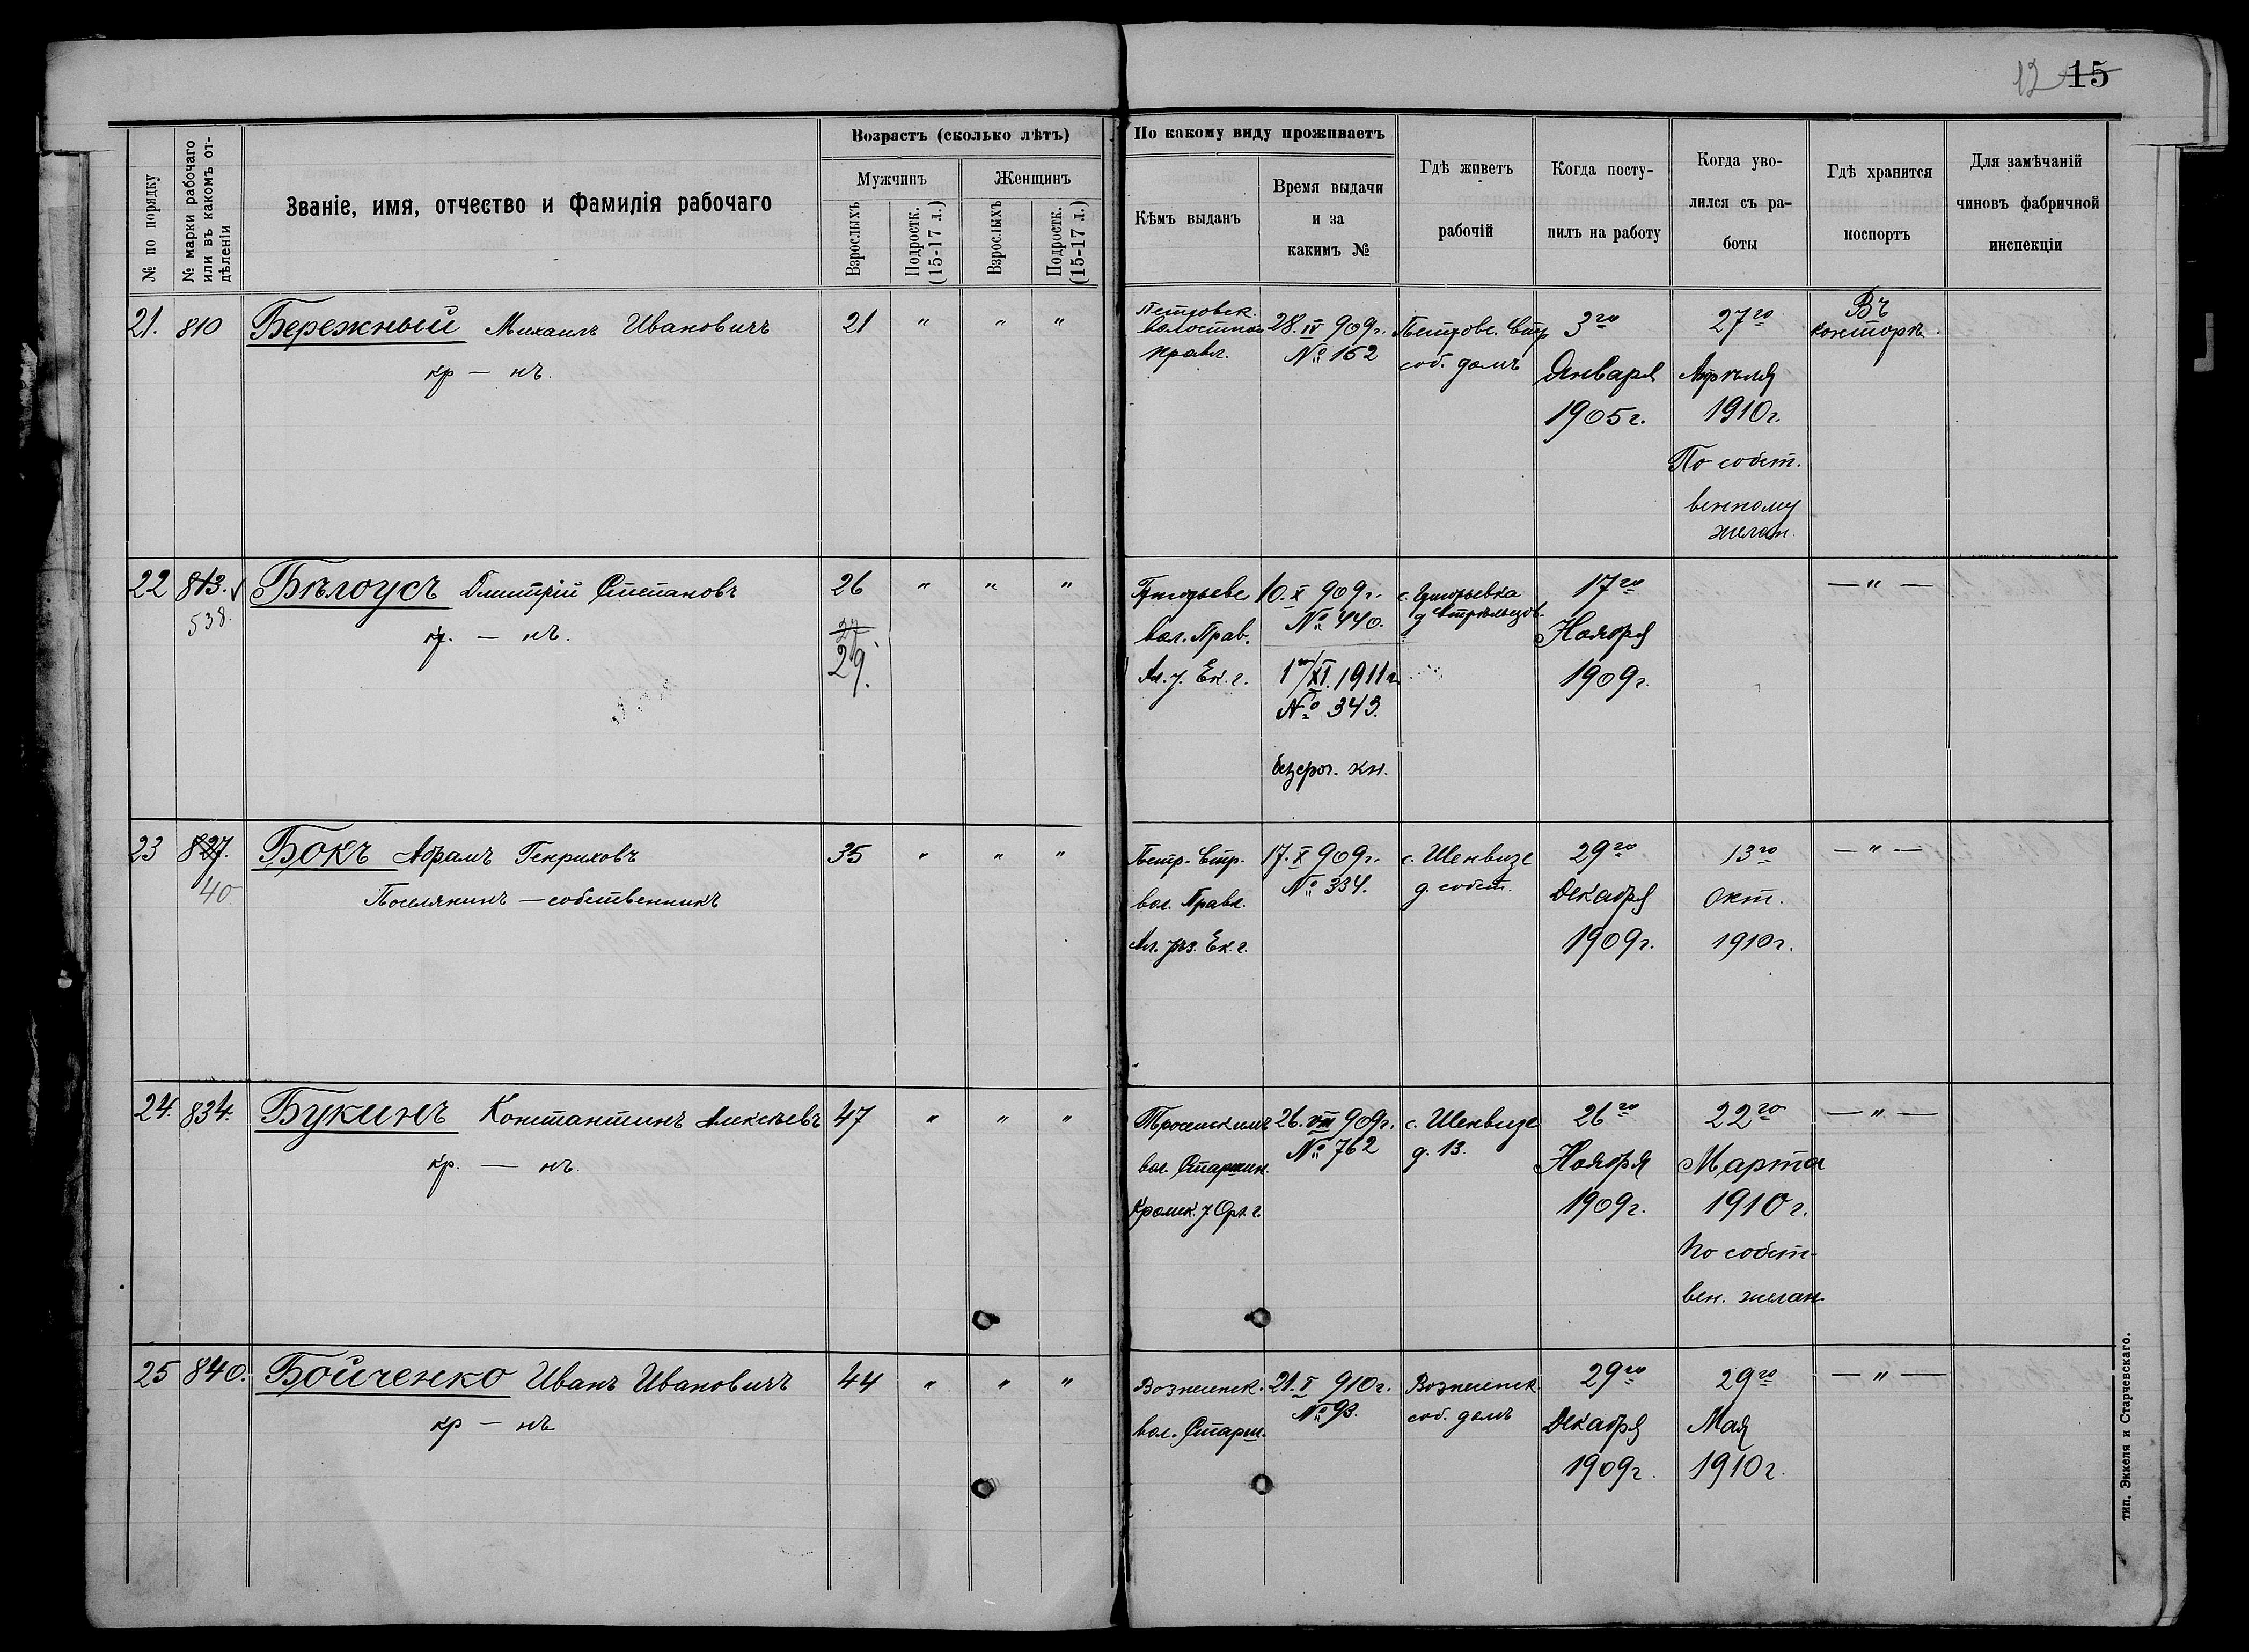 12 15
№ по порядку
№ марки рабочаго
или въ какомъ от-
дѣленіи
Званіе, имя, отчество и фамилія рабочаго
Возрастъ (сколько лѣтъ)
Мужчинъ
Женщинъ
Взрослыхъ
Подростк.
(15-17 л.)
Взрослыхъ
Подростк.
(15-17 л.)
По какому виду проживаетъ
Кѣмъ выданъ
Время выдачи
и за
какимъ №
Гдѣ живетъ
рабочій
Когда посту-
пилъ на работу
Когда уво-
лился съ ра-
боты
Гдѣ хранится
поспортъ
Для замѣчаній
чиновъ фабричной
инспекціи
21. 810 Бережный Михаилъ Ивановичъ 21 " " "
кр — нъ.
Петровск.
волостное
правл.
28. IV 909 г.
№ 152
Петровс. Стр
соб. домъ
3го
Января
1905 г.
27го
Апрѣля
1910 г.
По собст.
венному
желан.
Въ
конторѣ
22 813. Бѣлоусъ Дмитрій Степановъ 26 " " "
538.
кр. — нъ.
27
29.
Григорьевс.
вол. Прав.
Ал. у. Ек. г.
10. X 909 г.
№ 440.
1го/XI. 1911 г.
№ 343.
безсроч. кн.
с. Григорьевка
17го
Ноября
1909 г.
— " —
23 827. Бокъ Абрамъ Генриховъ 35 " " "
40
Поселянинъ — собственникъ
Петр. Стр.
вол. Правл.
Ал. уѣз. Ек. г.
17. X 909 г.
№ 334.
с. Шенвизе
д. собст.
29го
Декабря
1909 г.
13го
Окт.
1910 г.
— " —
24. 834. Букинъ Константинъ Алексѣевъ 47 " " "
кр. — нъ.
Тросенскимъ
вол. Старшин.
Кромск. у Орл. г.
26. VIII 909 г.
№ 762
с. Шенвизе
д. 13.
26го
Ноября
1909 г.
22го
Марта
1910 г.
По собст-
вен. желан.
— " —
25 840. Бойченко Иванъ Ивановичъ 44 " " "
кр — нъ
Вознесенск.
вол. Старш.
21. I 910 г.
№ 93.
Вознесенск
соб. домъ
29го
Декабря
1909 г.
29го
Мая
1910 г.
— " —
тип. Эккеля и Старчевскаго.